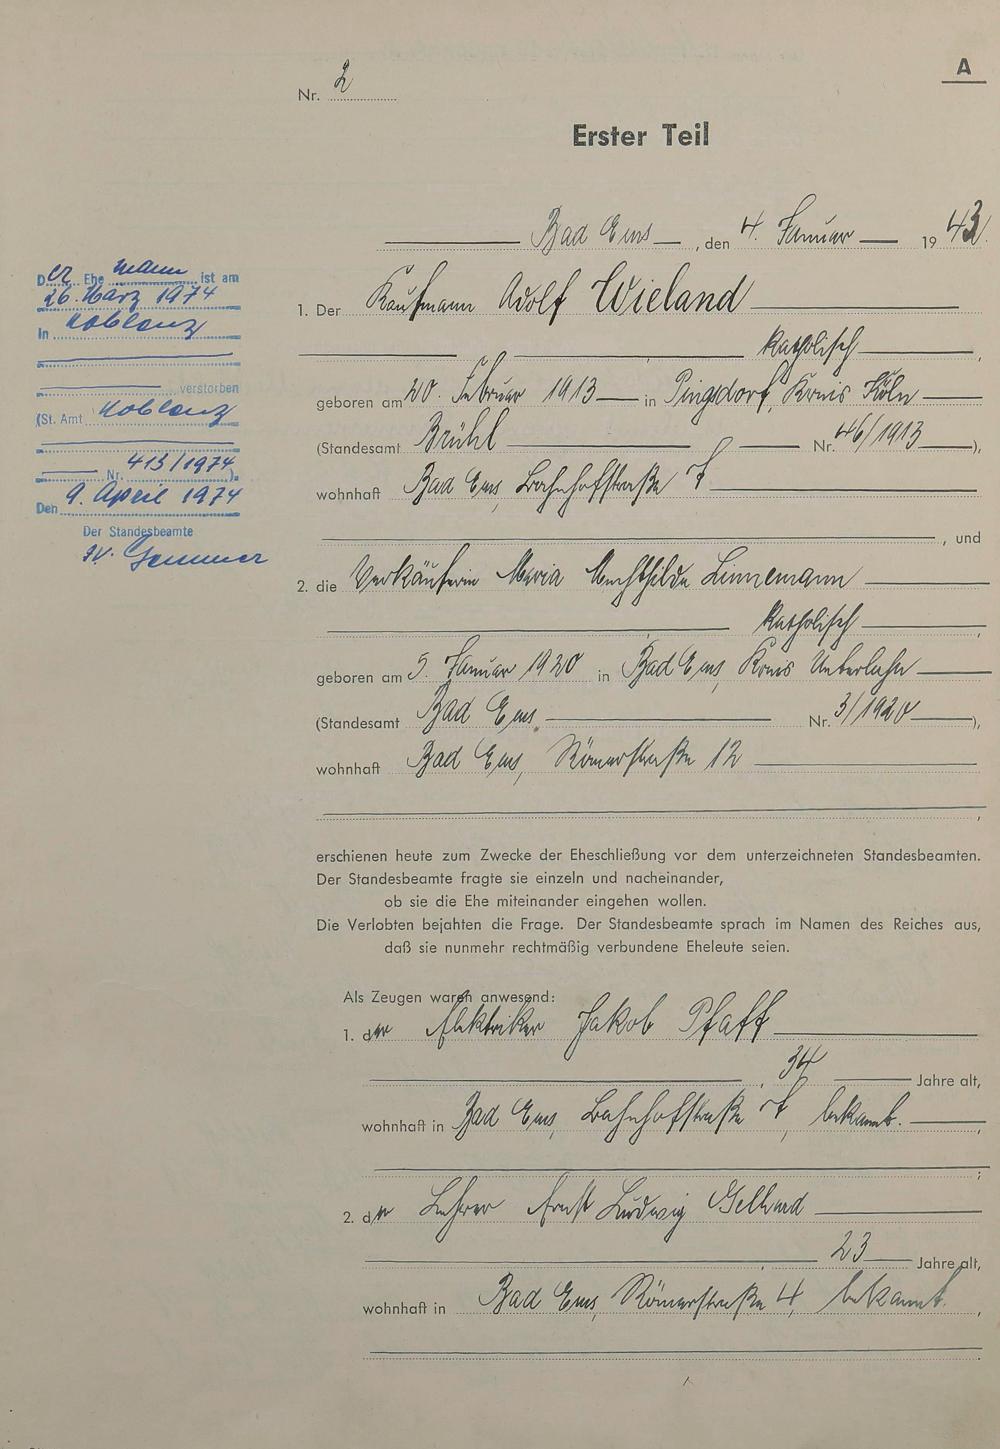 A
Nr. 2
Erster Teil
Bad Ems, den 4. Januar 1943.
1. Der Kaufmann Adolf Wieland
katholisch,
geboren am 20. Februar 1913 in Pingsdorf, Kreis Köln
(Standesamt Brühl Nr. 46/1913),
wohnhaft Bad Ems, Bahnhofstraße 7
, und
2. die Verkäuferin Maria Mechthilde Linnemann
katholisch,
geboren am 5. Januar 1920 in Bad Ems, Kreis Unterlahn
(Standesamt Bad Ems, Nr. 3/1920),
wohnhaft Bad Ems, Römerstraße 12
,
erschienen heute zum Zwecke der Eheschließung vor dem unterzeichneten Standesbeamten.
Der Standesbeamte fragte sie einzeln und nacheinander,
ob sie die Ehe miteinander eingehen wollen.
Die Verlobten bejahten die Frage. Der Standesbeamte sprach im Namen des Reiches aus,
daß sie nunmehr rechtmäßig verbundene Eheleute seien.
Als Zeugen waren anwesend:
1. der Elektriker Jakob Pfaff
, 34 Jahre alt,
wohnhaft in Bad Ems, Bahnhofstraße 7, bekannt.,
;
2. der Lehrer Ernst Ludwig Gelhard
, 23 Jahre alt,
wohnhaft in Bad Ems, Römerstraße 4, bekannt.,
Der Ehemann ist am
26. März 1974
In Koblenz
verstorben
(St. Amt Koblenz
Nr. 413/1974).
Den 9. April 1974
Der Standesbeamte